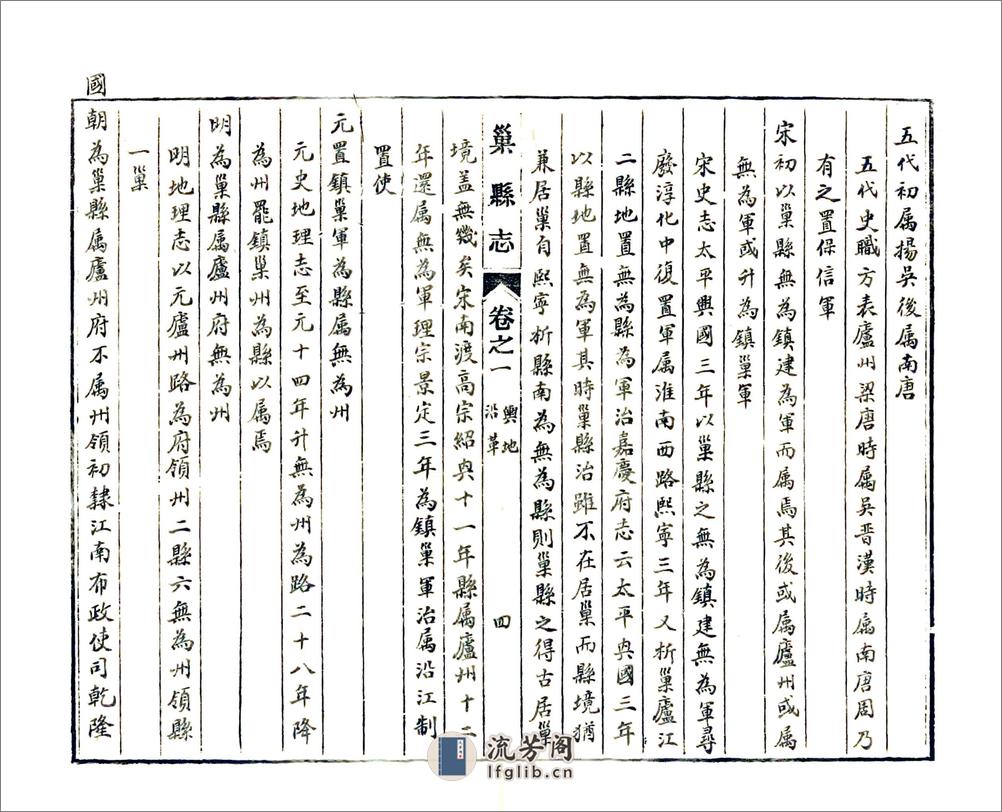 五代初属揚吳後属南唐
五代史職方表廬州梁唐時属吳晋漢時属南唐周乃
有之置保信軍
宋初以巢縣無為鎮建為軍而属焉其後或属廬州或属
無為軍或升為鎮巢軍
宋史志太平興國三年以巢縣之無為鎮建無為軍尋
廢淳化中復置軍属淮南西路熙寧三年又析巢廬江
二縣地置無為縣為軍治嘉慶府志云太平興國三年
以縣地置無為軍其時巢縣治雖不在居巢而縣境猶
兼居巢自熙寧析縣南為無為縣則巢縣之得古居巢
巢縣志
卷之一
輿地
沿革
四
境盖無幾矣宋南渡高宗紹興十一年縣属廬州十二
年還属無為軍理宗景定三年為鎮巢軍治属沿江制
置使
元置鎮巢軍為縣属無為州
元史地理志至元十四年升無為州為路二十八年降
為州罷鎮巢州為縣以属焉
明為巢縣属廬州府無為州
明地理志以元廬州路為府領州二縣六無為州領縣
一巢
國
朝為巢縣属廬州府不属州領初隸江南布政使司乾隆
流芳阁
lfglib.cn